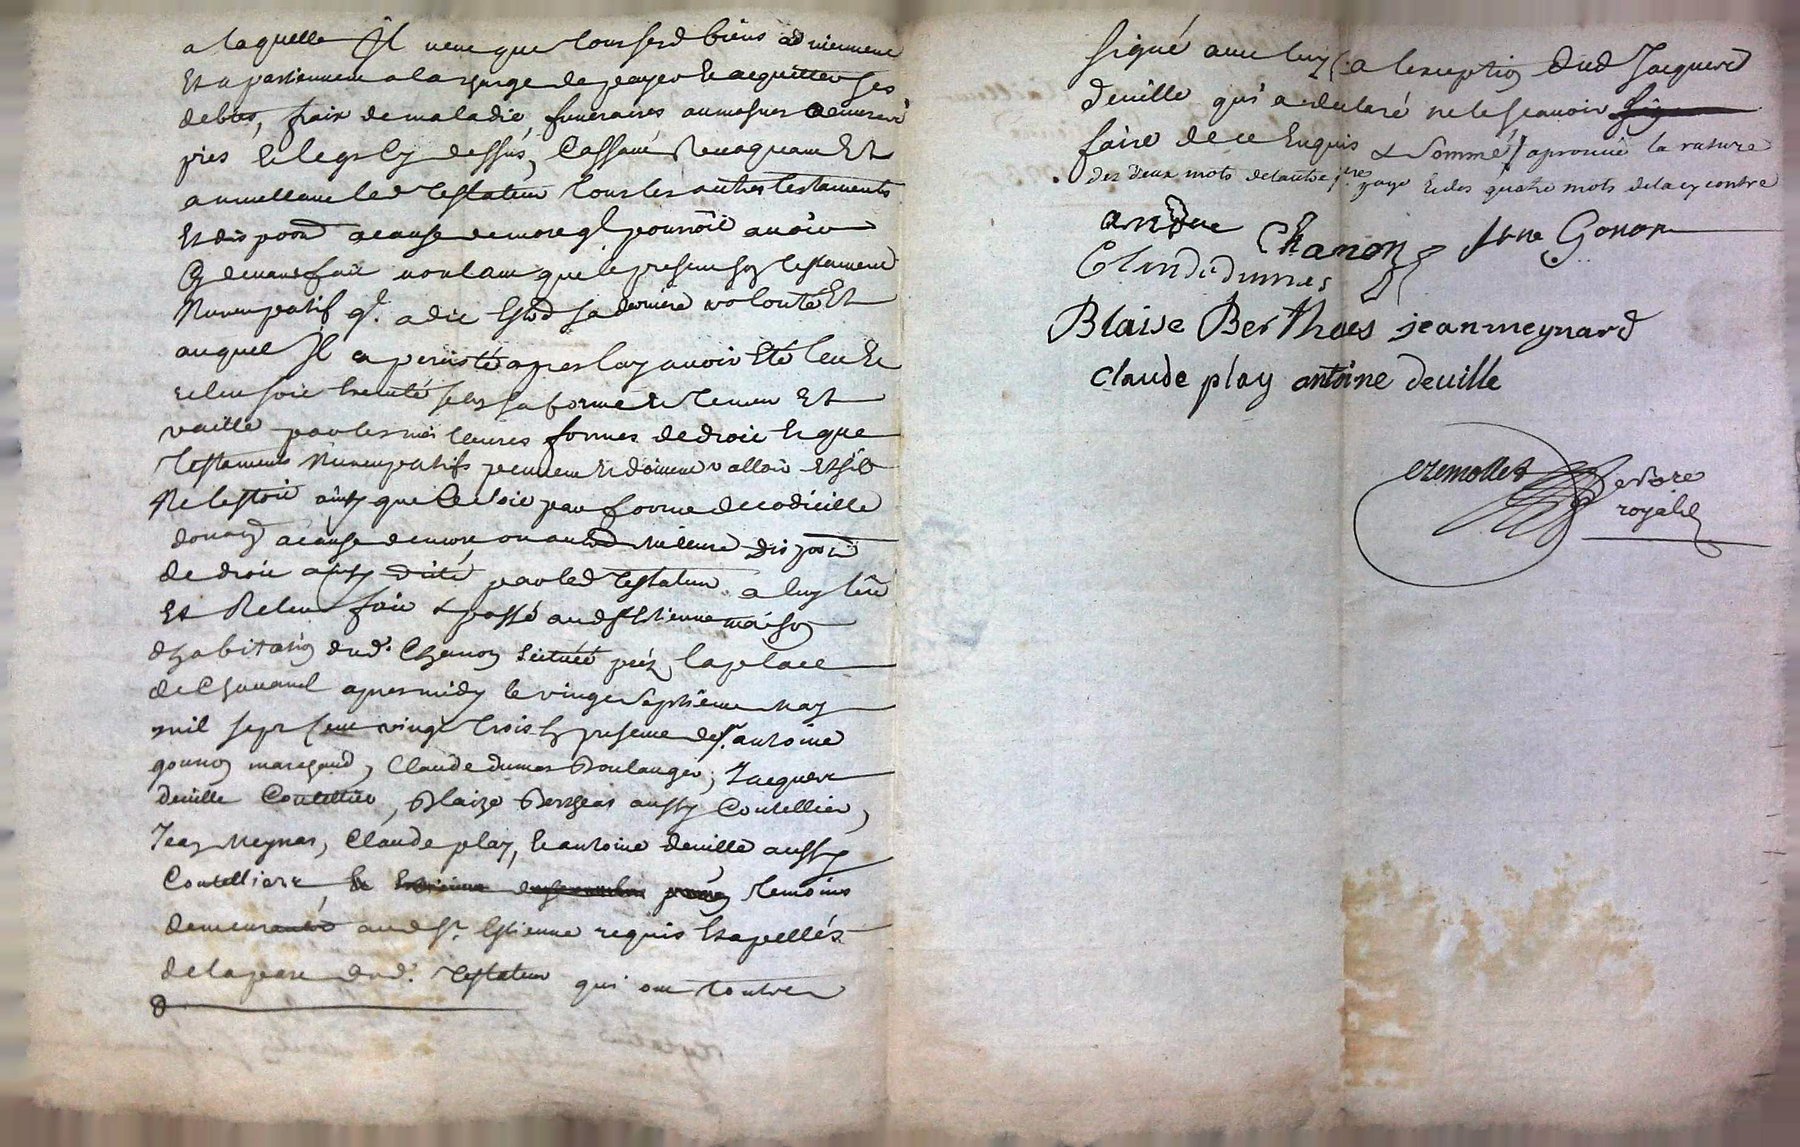 a laquelle Il veut que tous sesd biens adviennent
Et apartiennent a la charge de payer et acquitter ses
debtes, frais de maladie funeraires aumosnes
pies et legs cy dessus, Cassant Revoquant Et
annullant led Testateur tous les autres testaments
Et dispoõn a cause de mort ql pourroit avoir
cy devant fait voulant que le present son testament
Nuncupatif ql a dit Estre sa derniere volonté Et
auquel Il a persisté apres luy avoir Eté leu Et
releu soit Executé selon sa forme et teneur Et
vaille par les meilleures formes de droit Et que
Testaments Nuncupatifs peuvent Et doivent valloir Et s'il
Ne lestoit ainsy que Ce soit par forme de codicille
donaõn a cause de mort ou autre meilleure dispoõn
de droit ainsy dicté par led Testateur a luy leu
Et Releu fait & passé aud St Etienne maison
d'habitation dud. Chanon scituée prez la place
de Chavanel apres midy le vingt septieme may
mil sept cent vingt trois En presence de sr. antoine
gounon marchand, Claude dumas Boulanger, Jacques
deville Coutellier, Blaize Bertheas aussy Coutellier,
Jean Meynar, Claude play, Et antoine deville aussy
Coutelliers temoins
demeurants aud St. Estienne requis Et apellés
de la part dud. Testateur qui ont
signé avec luy a lexception dud Jacques
deville qui a declaré ne le scavoir
faire de ce Enquis & Sommé / aprouvé la rature
des deux mots de lautre page Et des quatre mots de la cy contre
Chanon Gonon
Claude dumas
Blaise Berthaes jean meynard
claude play antoine deville
royal